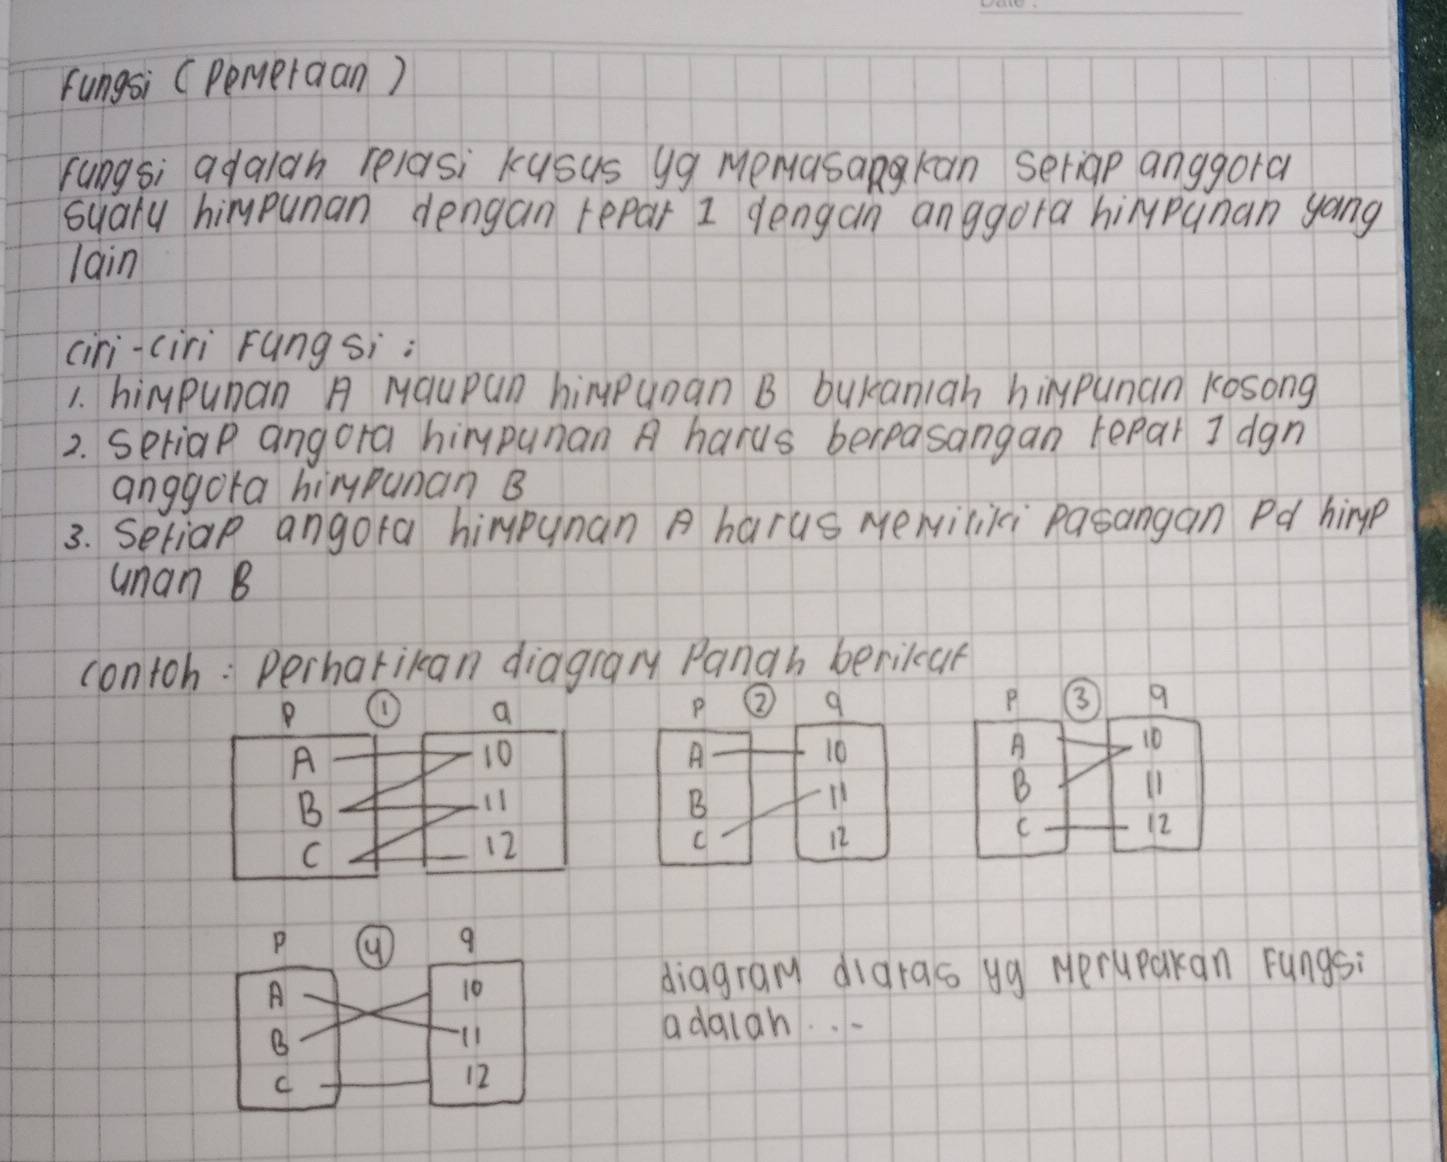 Date :
Fungsi (Pemetaan)
Fungsi adalah relasi kusus yg memasangkan setiap anggota
suatu himpunan dengan tepat 1 dengan anggota himpunan yang
lain
ciri-ciri Fungsi :
1. himpunan A maupun himpunan B bukanlah himpunan kosong
2. setiap angota himpunan A harus berpasangan tepat 1 dgn
anggota himpunan B
3. Setiap angota himpunan A harus memiliki pasangan pd himp
unan B
contoh : perhatikan diagram panah berikut
P ① q P ② q P ③ q
A 10 A 10 A 10
B 11 B 11 B 11
C 12 C 12 C 12
P ④ q
A 10
B 11
C 12
diagram diatas yg merupakan Fungsi
adalah ...